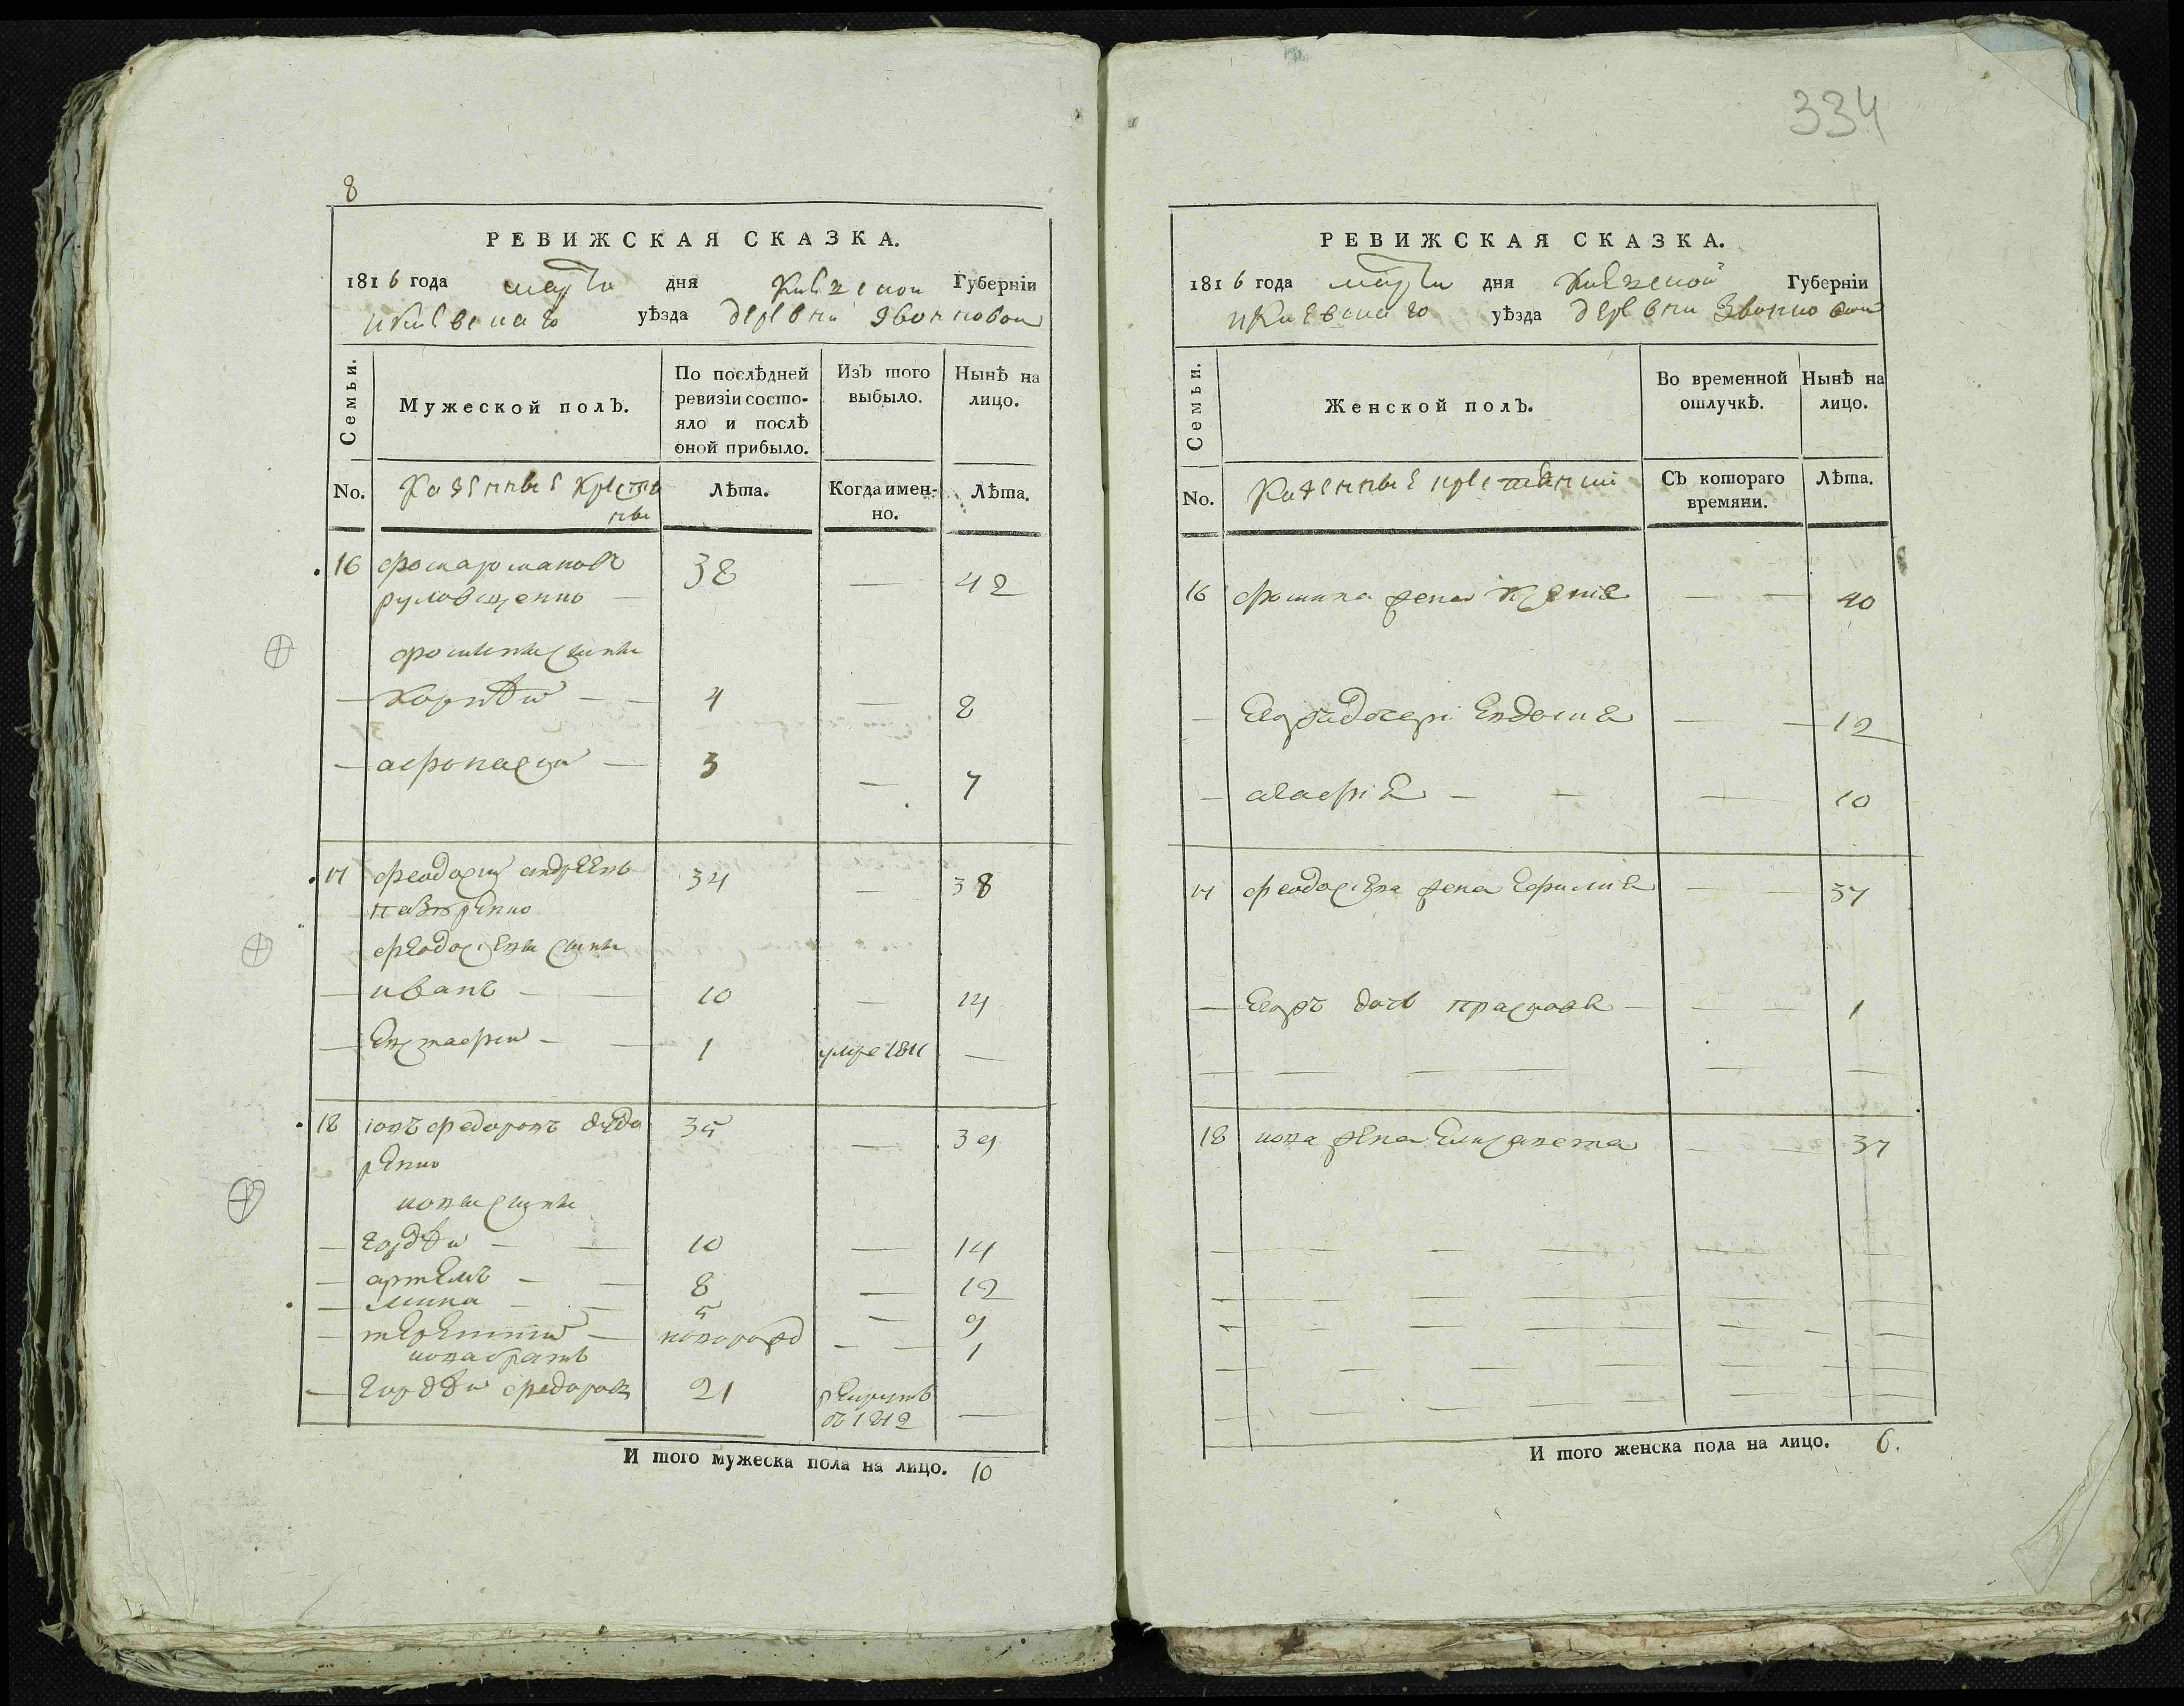 8
РЕВИЖСКАЯ СКАЗКА.
1816 года марта дня Киевской Губерніи
Киевскаго уѣзда деревни Звонковой
Семьи.
Мужеской полЪ.
По послѣдней ревизіи состо-
яло и послѣ
оной прибыло.
ИзЪ того
выбыло.
Нынѣ на
лицо.
No.
Казенные Крестя
не
Лѣта.
Когда имен-
но.
Лѣта.
16 Фома романовъ 38 — 42
фомины сыны
— Корнѣй — — 4 — 8
— афонасий — 3 — 7
17 феодосий андреевъ 34 — 38
феодосиевы сыны
— иванъ — — 10 — 14
— Евстафий — — 1 умре 1811 —
18 іовъ федоровъ 35 — 39
иовы сыны
— Гордѣй — — 10 — 14
— артемъ — — 8 — 12
— мина — — 5 — 9
— терентий — новорожд — — 1
иова братъ
— Гордѣй федоровъ 21 рекрутъ
въ 1812 —
И того мужеска пола на лицо. 10
334
РЕВИЖСКАЯ СКАЗКА.
1816 года марта дня Киевской Губерніи
Киевскаго уѣзда деревни Звонковой
Семьи.
Женской полЪ.
Во временной
отлучкѣ.
Нынѣ на
лицо.
No.
Казенные крестянки
СЪ котораго
времяни.
Лѣта.
16 фомина жена — — 40
— Евдокия — — 12
— агафия — — — 10
17 феодосиева жена Ефимия — — 37
— дочь прасковя — — — 1
18 иова жена Елисавета — — 37
И того женска пола на лицо. 6.